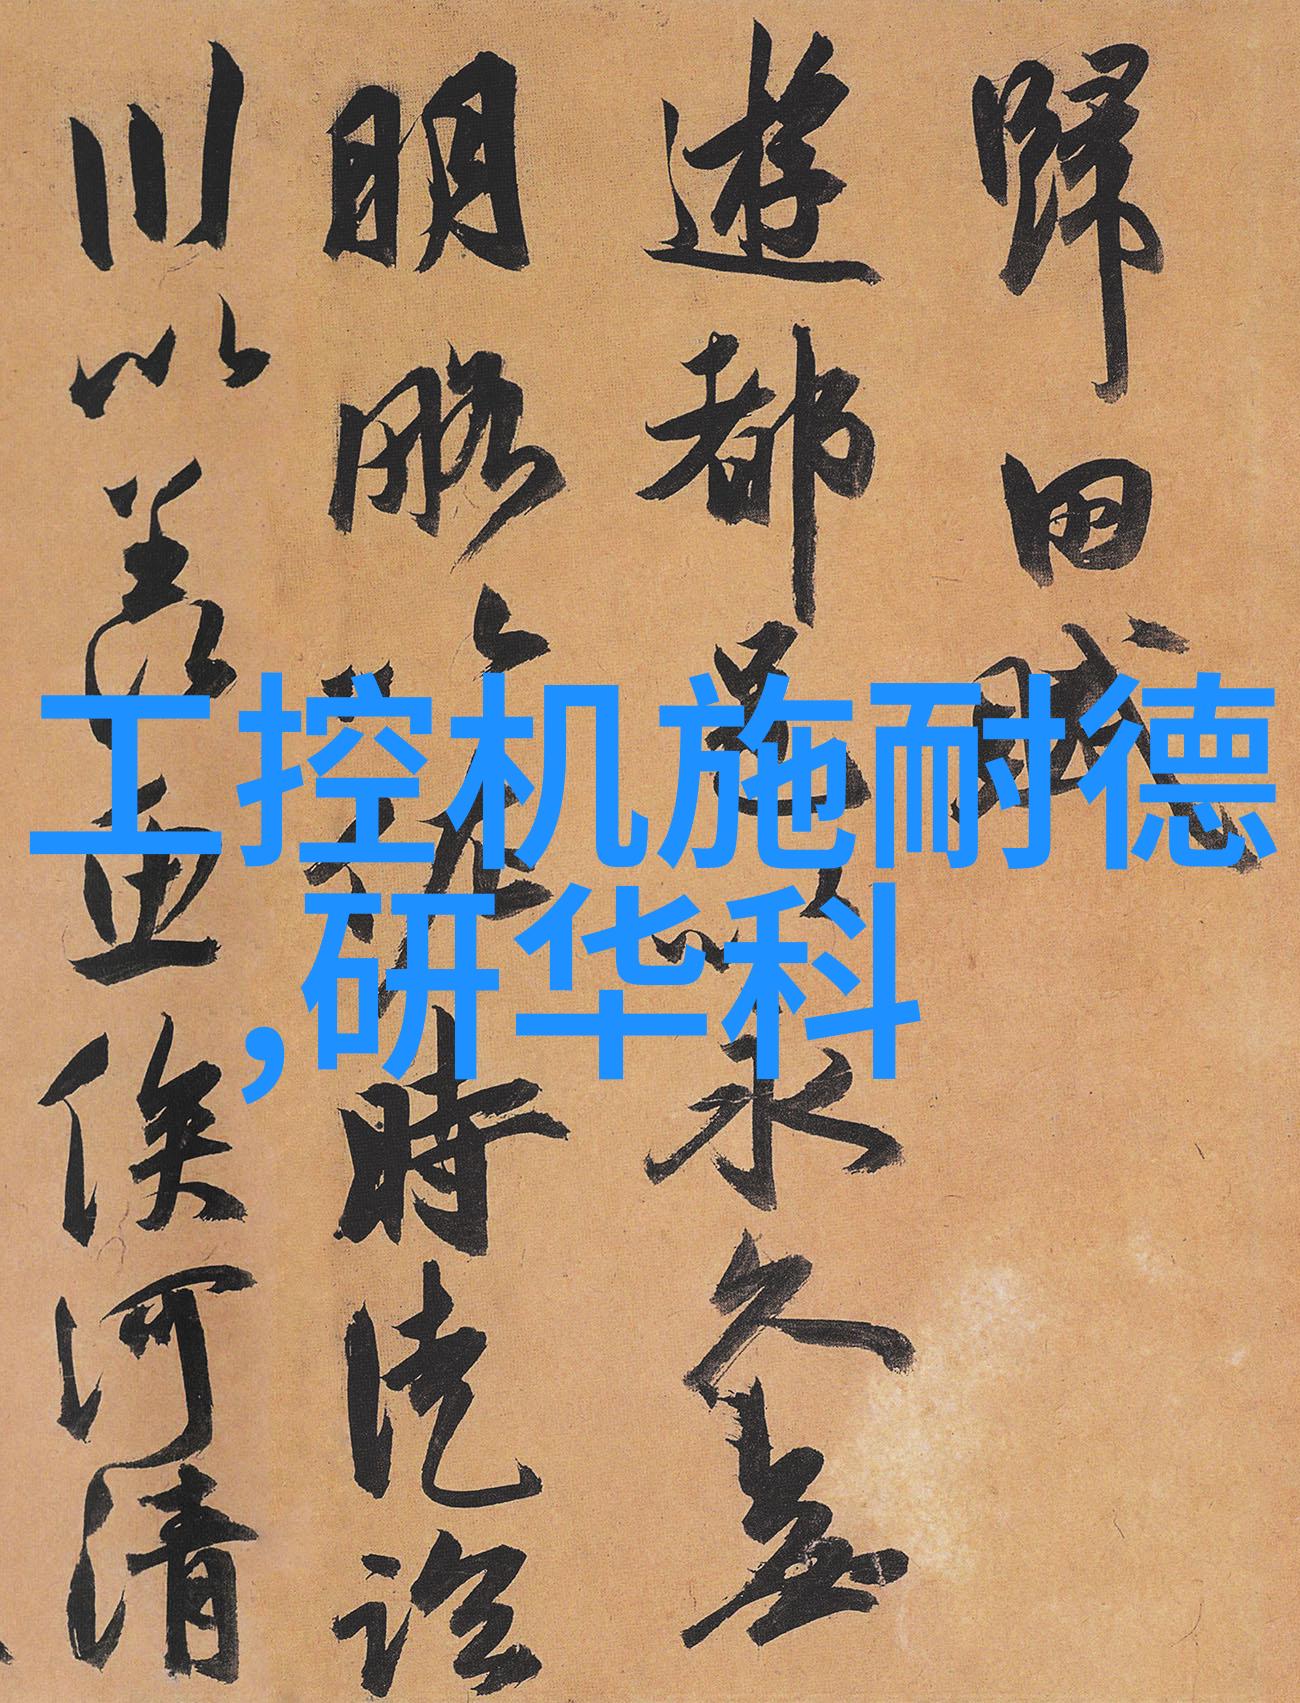 歸田賦
遊都邑以永久無
明略以佐時徒臨
川以羨魚俟河清
工控机施耐德
,研华科